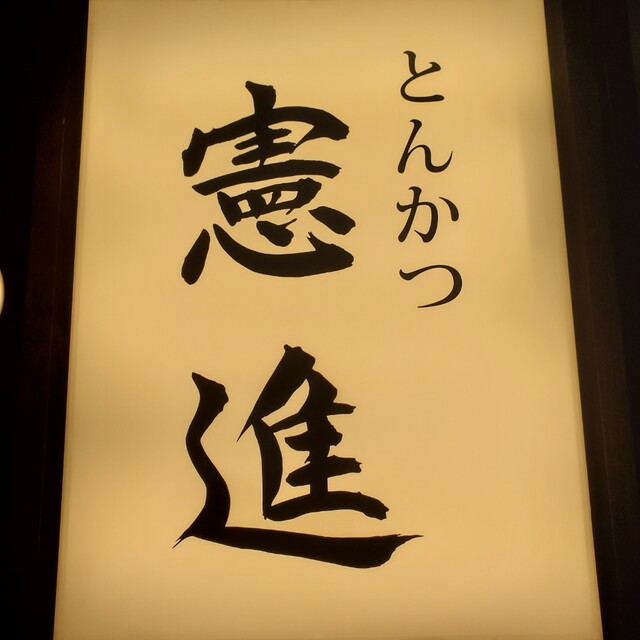 とんかつ
憲進